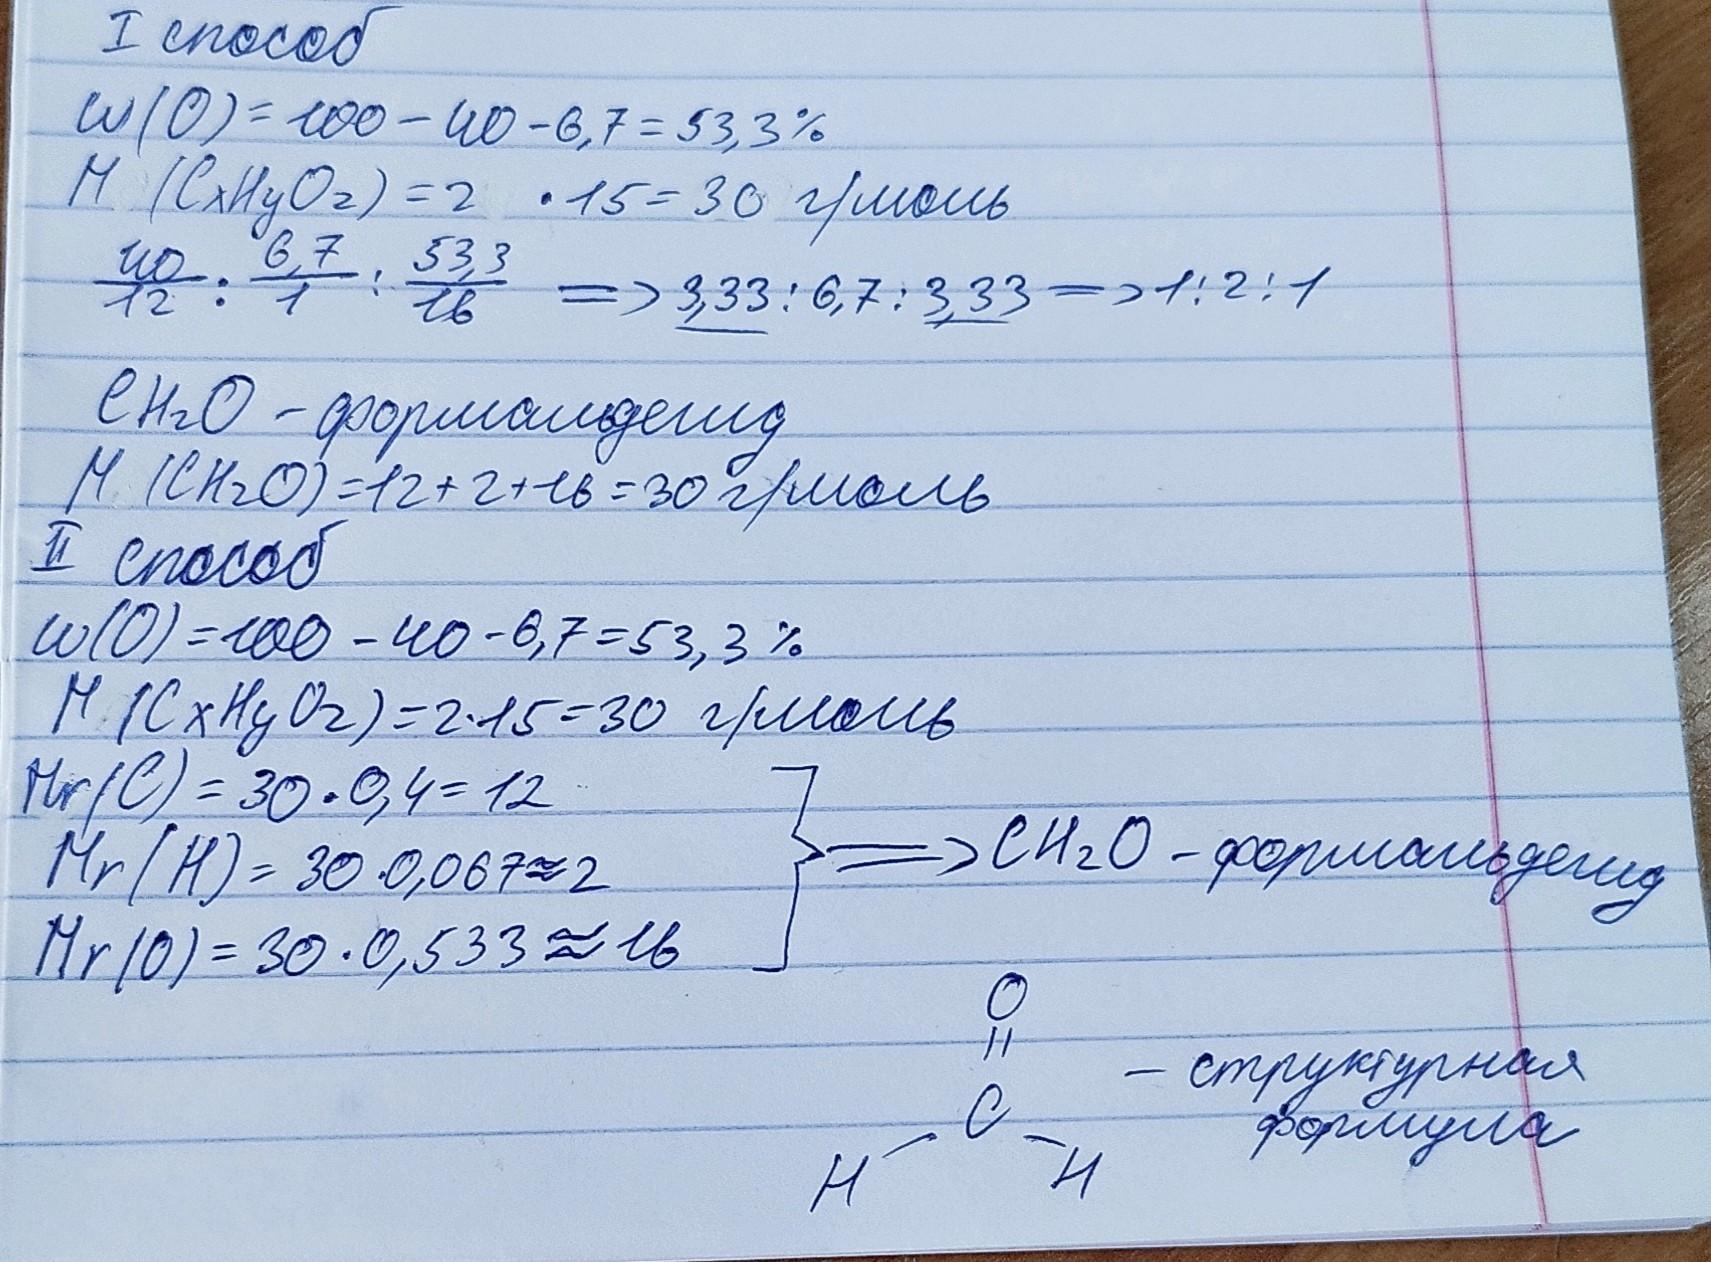 I способ
w(O) = 100 - 40 - 6,7 = 53,3%
M (CxHyOz) = 2 · 15 = 30 г/моль
40/12 : 6,7/1 : 53,3/16 => 3,33 : 6,7 : 3,33 => 1:2:1
CH₂O - формальдегид
M (CH₂O) = 12 + 2 + 16 = 30 г/моль
II способ
w(O) = 100 - 40 - 6,7 = 53,3 %
M (CxHyOz) = 2 · 15 = 30 г/моль
Mr(C) = 30 · 0,4 = 12
Mr(H) = 30 · 0,067 ≈ 2
=> CH₂O - формальдегид
Mr(O) = 30 · 0,533 ≈ 16
O
||
C
H H
- структурная
формула